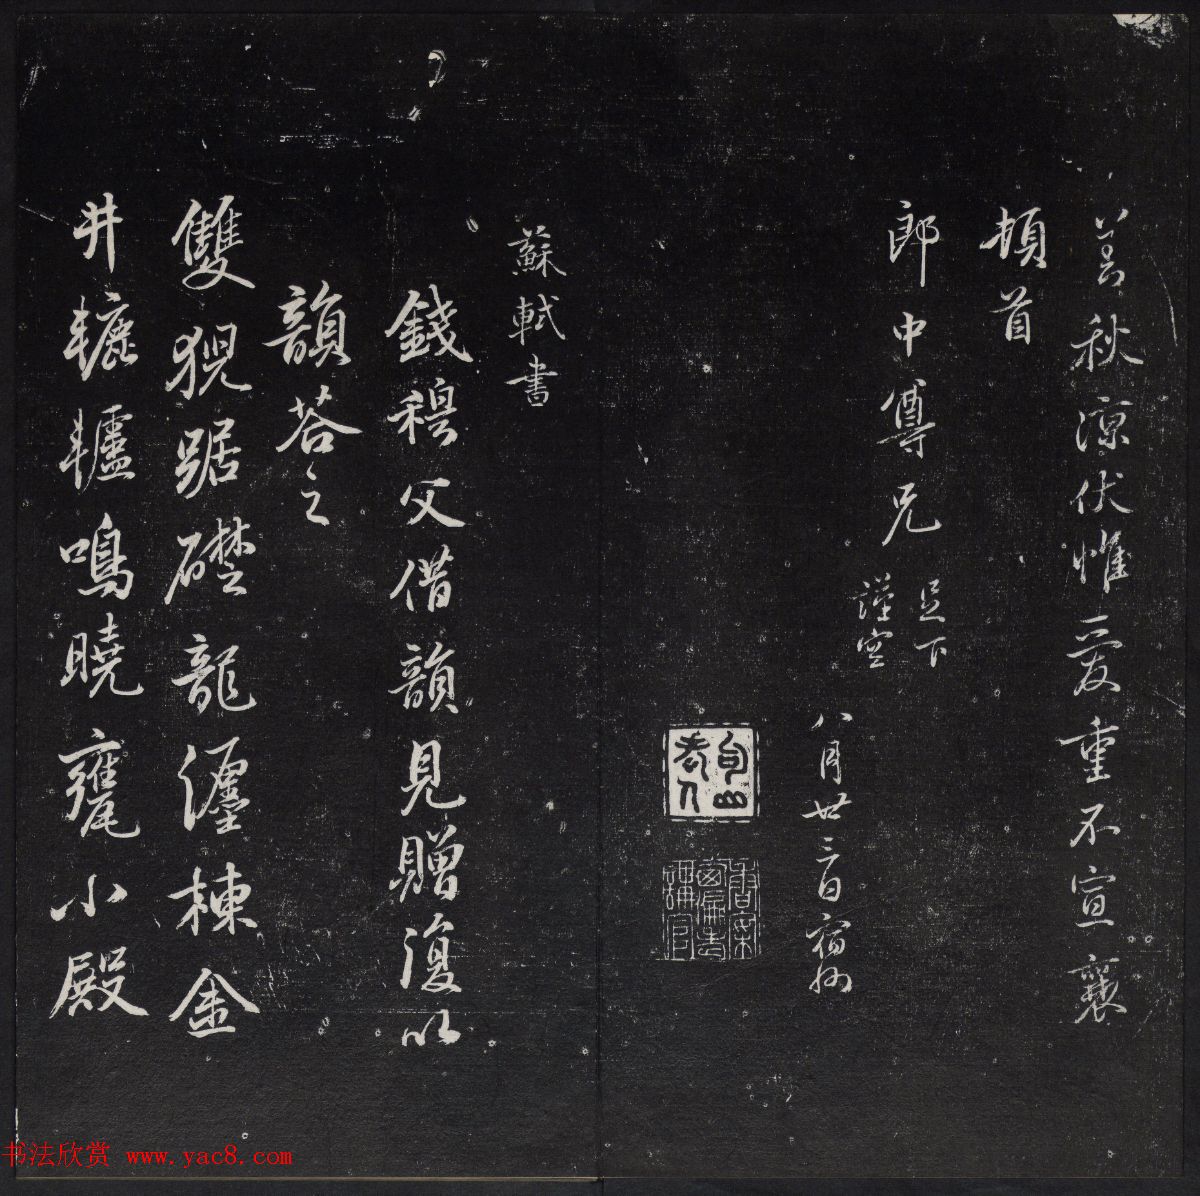 善秋涼伏惟愛重不宣襄
頓首
郎中尊兄
足下
謹空
八月廿三日宿州
蘇軾書
錢穆父借韻見贈復以
韻荅之
雙猊踞礎龍纏棟金
井轆轤鳴曉甕小殿
书法欣赏 www.yac8.com